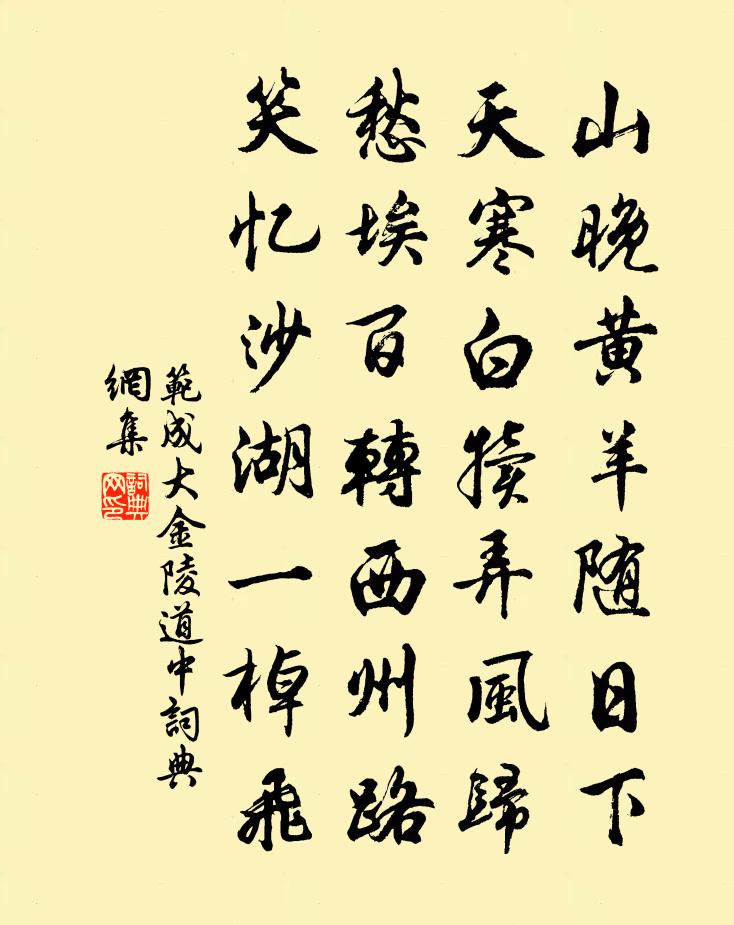 山晚黄羊随日下
天寒白犢弄風歸
愁埃百轉西州路
笑忆沙湖一棹飛
範成大金陵道中詞典
網集
詞典
网印